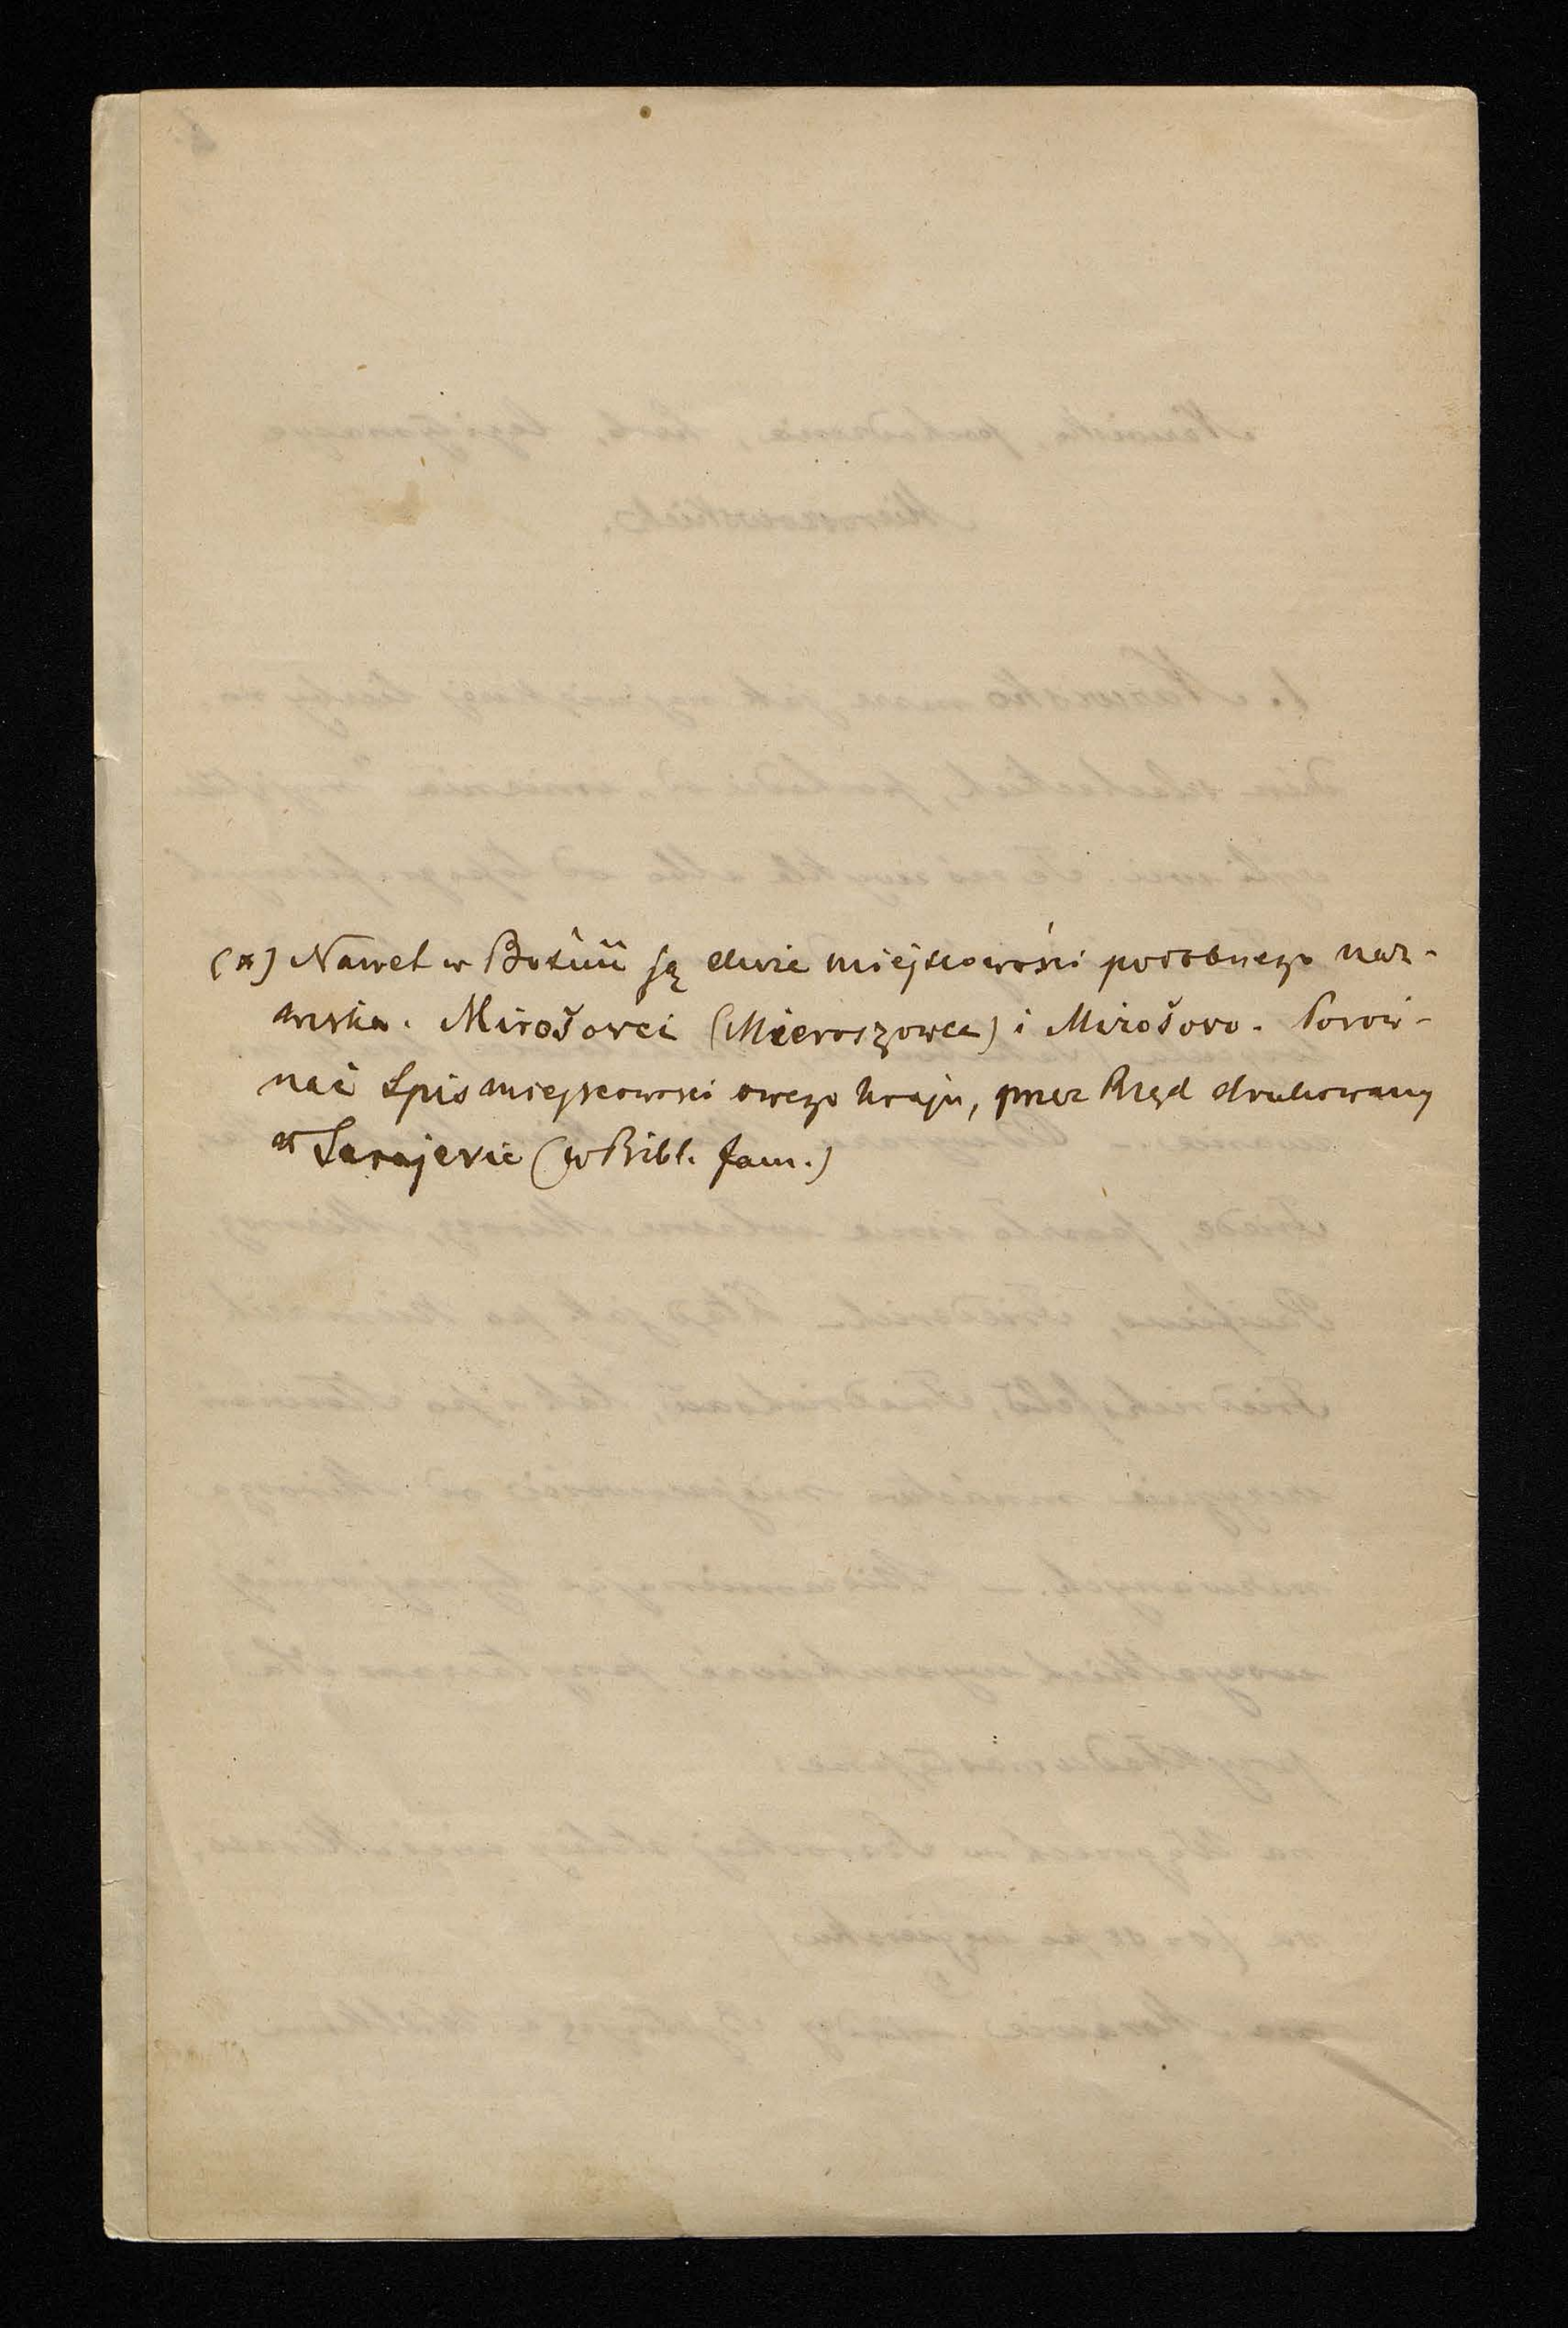 (*) Nawet w Bośnii są dwie miejscowości podobnego naz-
wiska. Mirošovci (Mieroszowce) i Mirošovo. Porów-
nać Spis miejscowości owego kraju, przez Rząd drukowany
w Sarajevie (w Bibl. fam.)